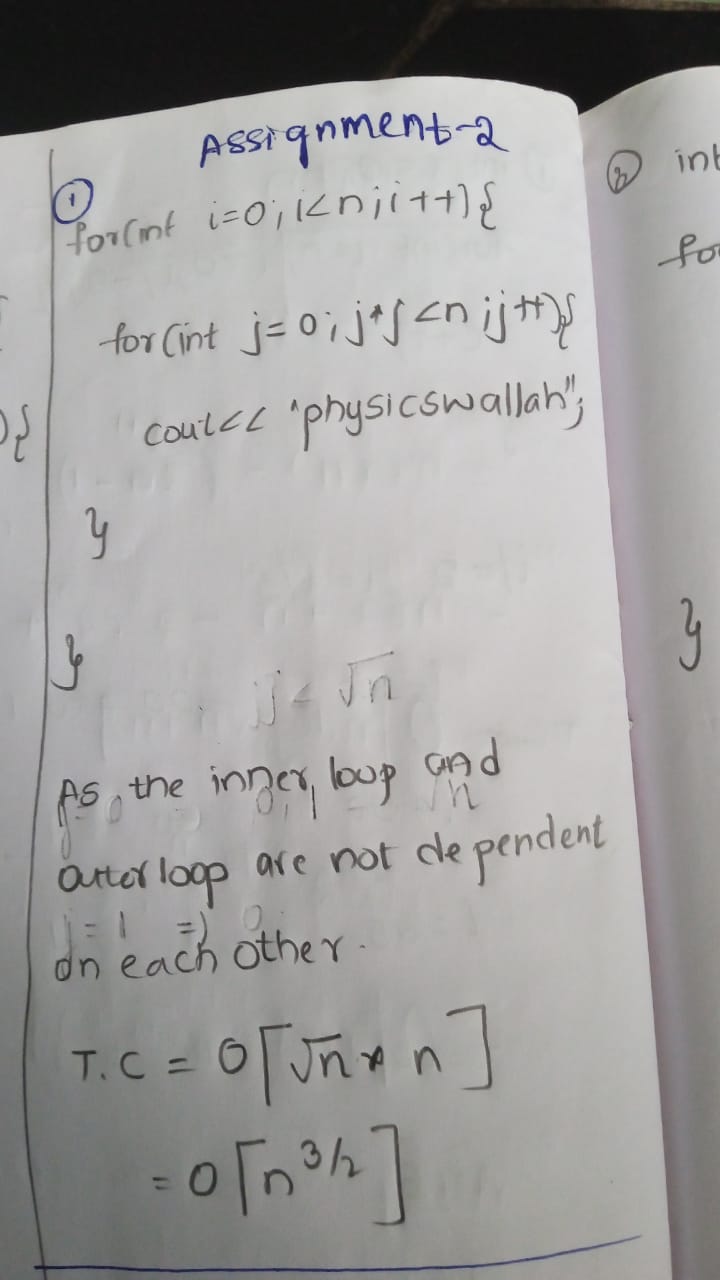 Assignment-2
①
for(int i=0; i<n; i++){
for(int j=0; j*j<n; j++){
cout<< "physicswallah";
}
}
j<√n
As, the inner, loop and
outer loop are not dependent
on each other.
T.C = O[√n * n]
= O[n^3/2]
② int
for
}
){